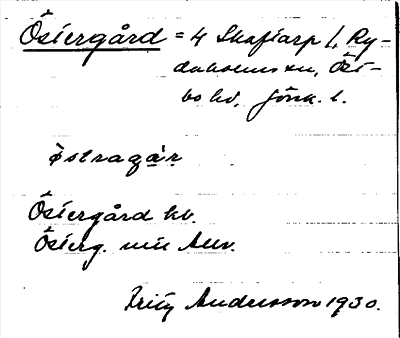 Östergård = 4 Skaftarp l, Ry-
daholms sn, Öst-
bo hd, Jönk. l.
östragár
Östergård kv.
Österg. Anv.
Fritz Andersson 1930.